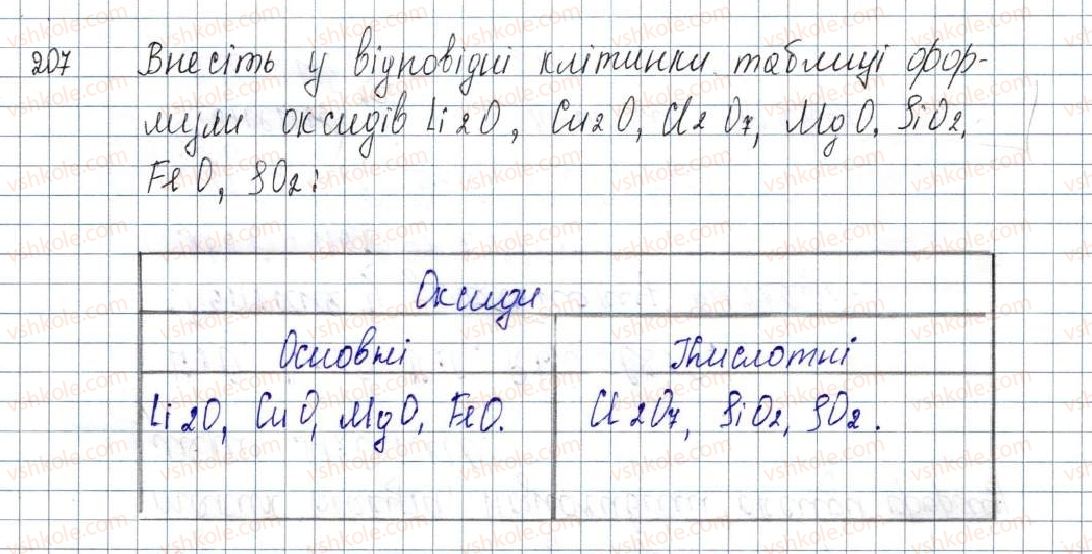 207 Внесіть у відповідні клітинки таблиці фор-
мули оксидів Li2O, Cu2O, Cl2O7, MgO, SiO2,
FeO, SO2:
Оксиди
Основні Кислотні
Li2O, CuO, MgO, FeO. Cl2O7, SiO2, SO2.